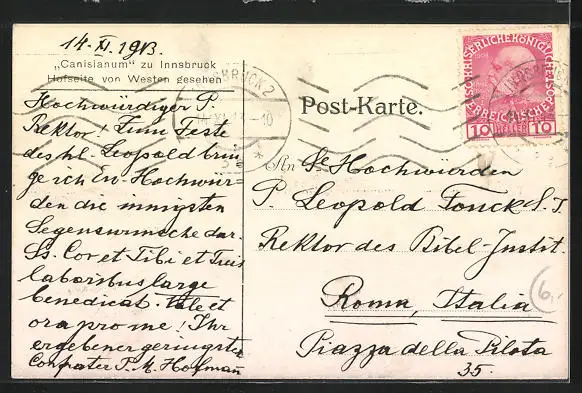 14. XI. 1913.
„Canisianum" zu Innsbruck
Hofseite von Westen gesehen
Hochwürdiger P.
Rektor! Zum Feste
des hl. Leopold brin
ge ich Eu. Hochwür-
den die innigsten
Segenswünsche dar.
Ss. Cor et Tibi et Tuis
laboribus large
benedicat. Vale et
ora pro me! Ihr
ergebener geringster
Confrater P. M. Hofmann
INNSBRUCK 2
Post-Karte.
KAISERLICHE KÖNIGLICHE
ÖSTERREICHISCHE POST
10 HELLER 10
An Se Hochwürden
P. Leopold Fonck S. J.
Rektor des Bibel-Instit.
Roma, Italia
Piazza della Pilota
35.
6,